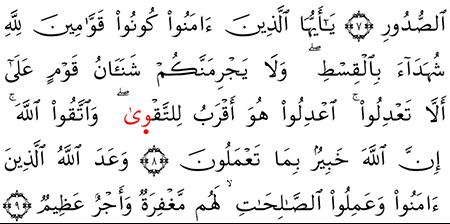 ٱلصُّدُورِ ۝٧ يَـٰٓأَيُّهَا ٱلَّذِينَ ءَامَنُوا۟ كُونُوا۟ قَوَّٰمِينَ لِلَّهِ
شُهَدَآءَ بِٱلْقِسْطِ ۖ وَلَا يَجْرِمَنَّكُمْ شَنَـَٔانُ قَوْمٍ عَلَىٰٓ
أَلَّا تَعْدِلُوا۟ ۚ ٱعْدِلُوا۟ هُوَ أَقْرَبُ لِلتَّقْوَىٰ ۖ وَٱتَّقُوا۟ ٱللَّهَ ۚ
إِنَّ ٱللَّهَ خَبِيرٌۢ بِمَا تَعْمَلُونَ ۝٨ وَعَدَ ٱللَّهُ ٱلَّذِينَ
ءَامَنُوا۟ وَعَمِلُوا۟ ٱلصَّـٰلِحَـٰتِ ۙ لَهُم مَّغْفِرَةٌ وَأَجْرٌ عَظِيمٌ ۝٩